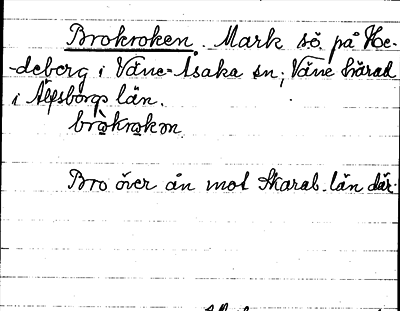 Brokroken. Mark sö. på He-
-deberg i Väne-Åsaka sn, Väne härad
i Älfsborgs län.
bròkrokən
Bro över ån mot Skarab. län där.